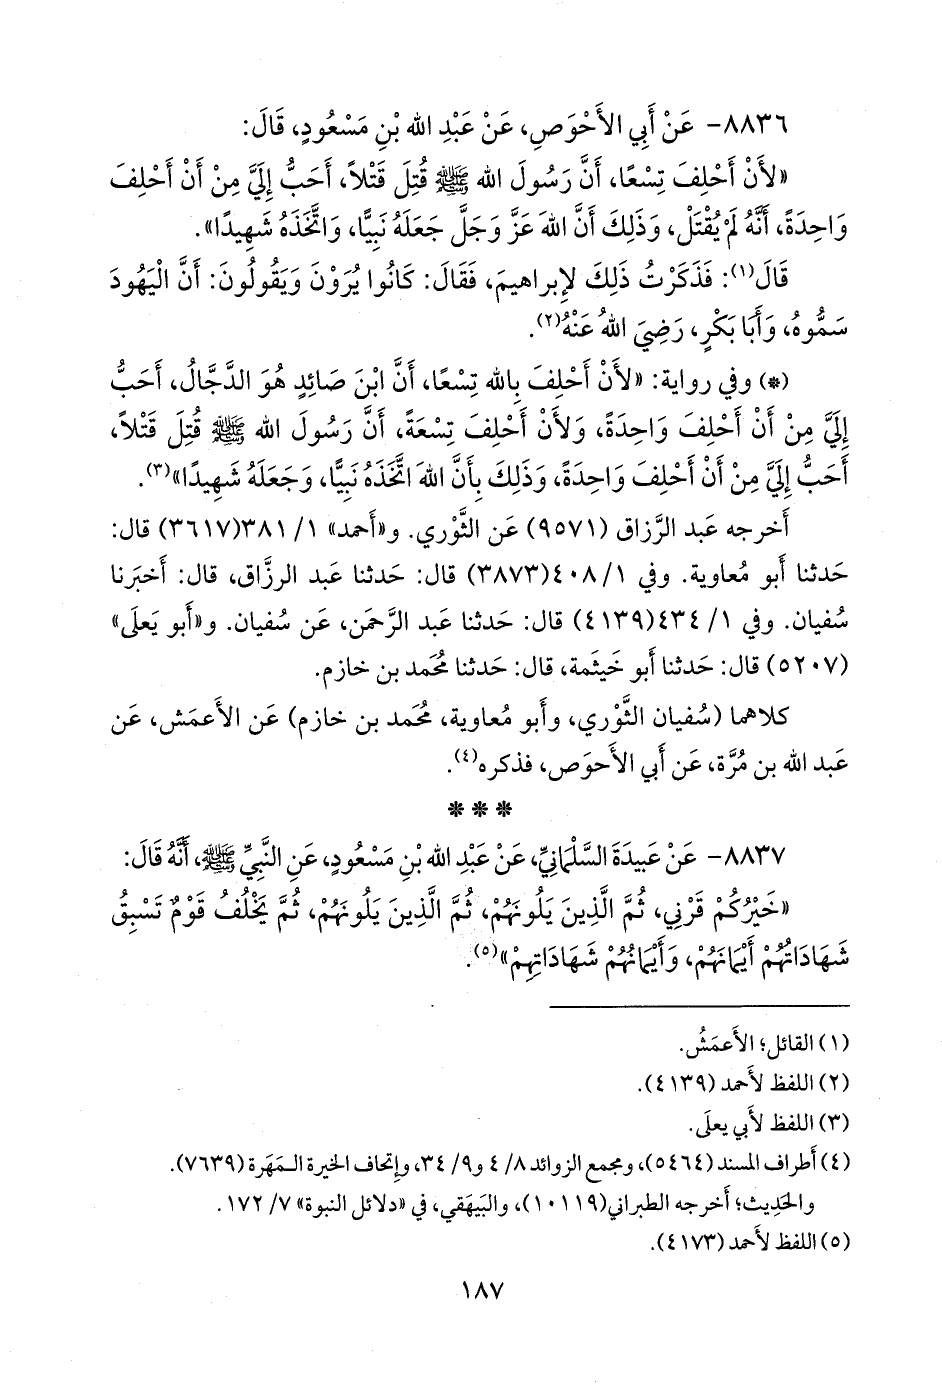 ٨٨٣٦- عَنْ أَبِي الأَحْوَصِ، عَنْ عَبْدِ الله بْنِ مَسْعُودٍ، قَالَ:
«لأَنْ أَحْلِفَ تِسْعًا، أَنَّ رَسُولَ الله ﷺ قُتِلَ قَتْلاً، أَحَبُّ إِلَيَّ مِنْ أَنْ أَحْلِفَ
وَاحِدَةً، أَنَّهُ لَمْ يُقْتَلْ، وَذَلِكَ أَنَّ اللهَ عَزَّ وَجَلَّ جَعَلَهُ نَبِيًّا، وَاتَّخَذَهُ شَهِيدًا».
قَالَ(١): فَذَكَرْتُ ذَلِكَ لإِبراهيمَ، فَقَالَ: كَانُوا يُرَوْنَ وَيَقُولُونَ: أَنَّ الْيَهُودَ
سَمُّوهُ، وَأَبَا بَكْرٍ، رَضِيَ اللهُ عَنْهُ(٢).
(*) وفي رواية: «لأَنْ أَحْلِفَ بِالله تِسْعًا، أَنَّ ابْنَ صَائِدٍ هُوَ الدَّجَّالُ، أَحَبُّ
إِلَيَّ مِنْ أَنْ أَحْلِفَ وَاحِدَةً، وَلأَنْ أَحْلِفَ تِسْعَةً، أَنَّ رَسُولَ الله ﷺ قُتِلَ قَتْلاً،
أَحَبُّ إِلَيَّ مِنْ أَنْ أَحْلِفَ وَاحِدَةً، وَذَلِكَ بِأَنَّ اللهَ اتَّخَذَهُ نَبِيًّا، وَجَعَلَهُ شَهِيدًا»(٣).
أَخرجه عَبد الرَّزاق (٩٥٧١) عَن الثَّوْري. و«أَحمد» ١/ ٣٨١(٣٦١٧) قال:
حَدثنا أَبو مُعاوية. وفي ١/ ٤٠٨(٣٨٧٣) قال: حَدثنا عَبد الرزَّاق، قال: أَخبَرنا
سُفيان. وفي ١/ ٤٣٤(٤١٣٩) قال: حَدثنا عَبد الرَّحمَن، عَن سُفيان. و«أَبو يَعلَى»
(٥٢٠٧) قال: حَدثنا أَبو خَيثَمة، قال: حَدثنا مُحَمد بن خازم.
كلاهما (سُفيان الثَّوْري، وأَبو مُعاوية، مُحَمد بن خازم) عَن الأَعمَش، عَن
عَبد الله بن مُرَّة، عَن أَبي الأَحوَص، فذكره(٤).
***
٨٨٣٧- عَنْ عَبِيدَةَ السَّلْمَانِيِّ، عَنْ عَبْدِ الله بْنِ مَسْعُودٍ، عَنِ النَّبِيِّ ﷺ، أَنَّهُ قَالَ:
«خَيْرُكُمْ قَرْنِي، ثُمَّ الَّذِينَ يَلُونَهُمْ، ثُمَّ الَّذِينَ يَلُونَهُمْ، ثُمَّ يَخْلُفُ قَوْمٌ تَسْبِقُ
شَهَادَاتُهُمْ أَيْمَانَهُمْ، وَأَيْمَانُهُمْ شَهَادَاتِهِمْ»(٥).
(١) القائل؛ الأَعمَشُ.
(٢) اللفظ لأَحمد (٤١٣٩).
(٣) اللفظ لأَبي يعلَى.
(٤) أطراف المسند (٥٤٦٤)، ومجمع الزوائد ٨/ ٤ و٩/ ٣٤، وإتحاف الخيرة المَهَرة (٧٦٣٩).
والحَدِيث؛ أَخرجه الطبراني(١٠١١٩)، والبَيهَقي، في «دلائل النبوة» ٧/ ١٧٢.
(٥) اللفظ لأَحمد (٤١٧٣).
١٨٧